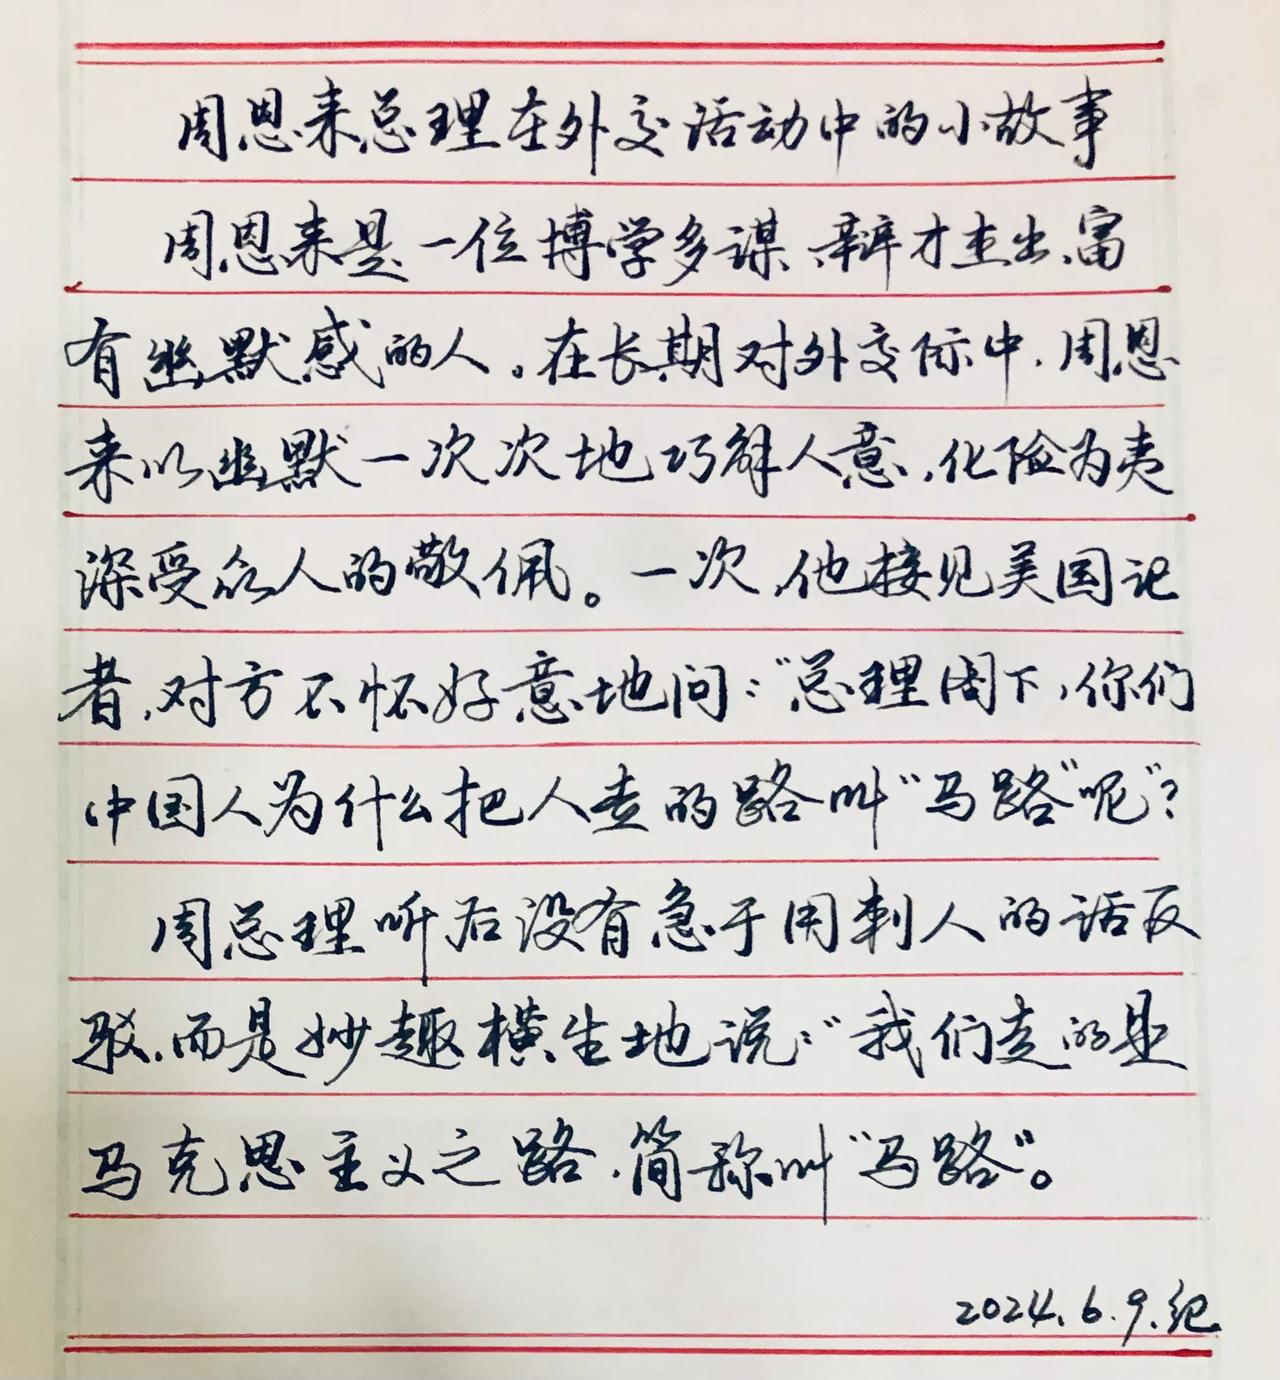 周恩来总理在外交活动中的小故事
周恩来是一位博学多谋、辩才杰出、富
有幽默感的人。在长期对外交际中，周恩
来以幽默一次次地巧解人意，化险为夷
深受众人的敬佩。一次，他接见美国记
者，对方不怀好意地问：“总理阁下，你们
中国人为什么把人走的路叫“马路”呢”？
周总理听后没有急于用刺人的话反
驳，而是妙趣横生地说：“我们走的是
马克思主义之路，简称叫“马路”。
2024.6.9.纪